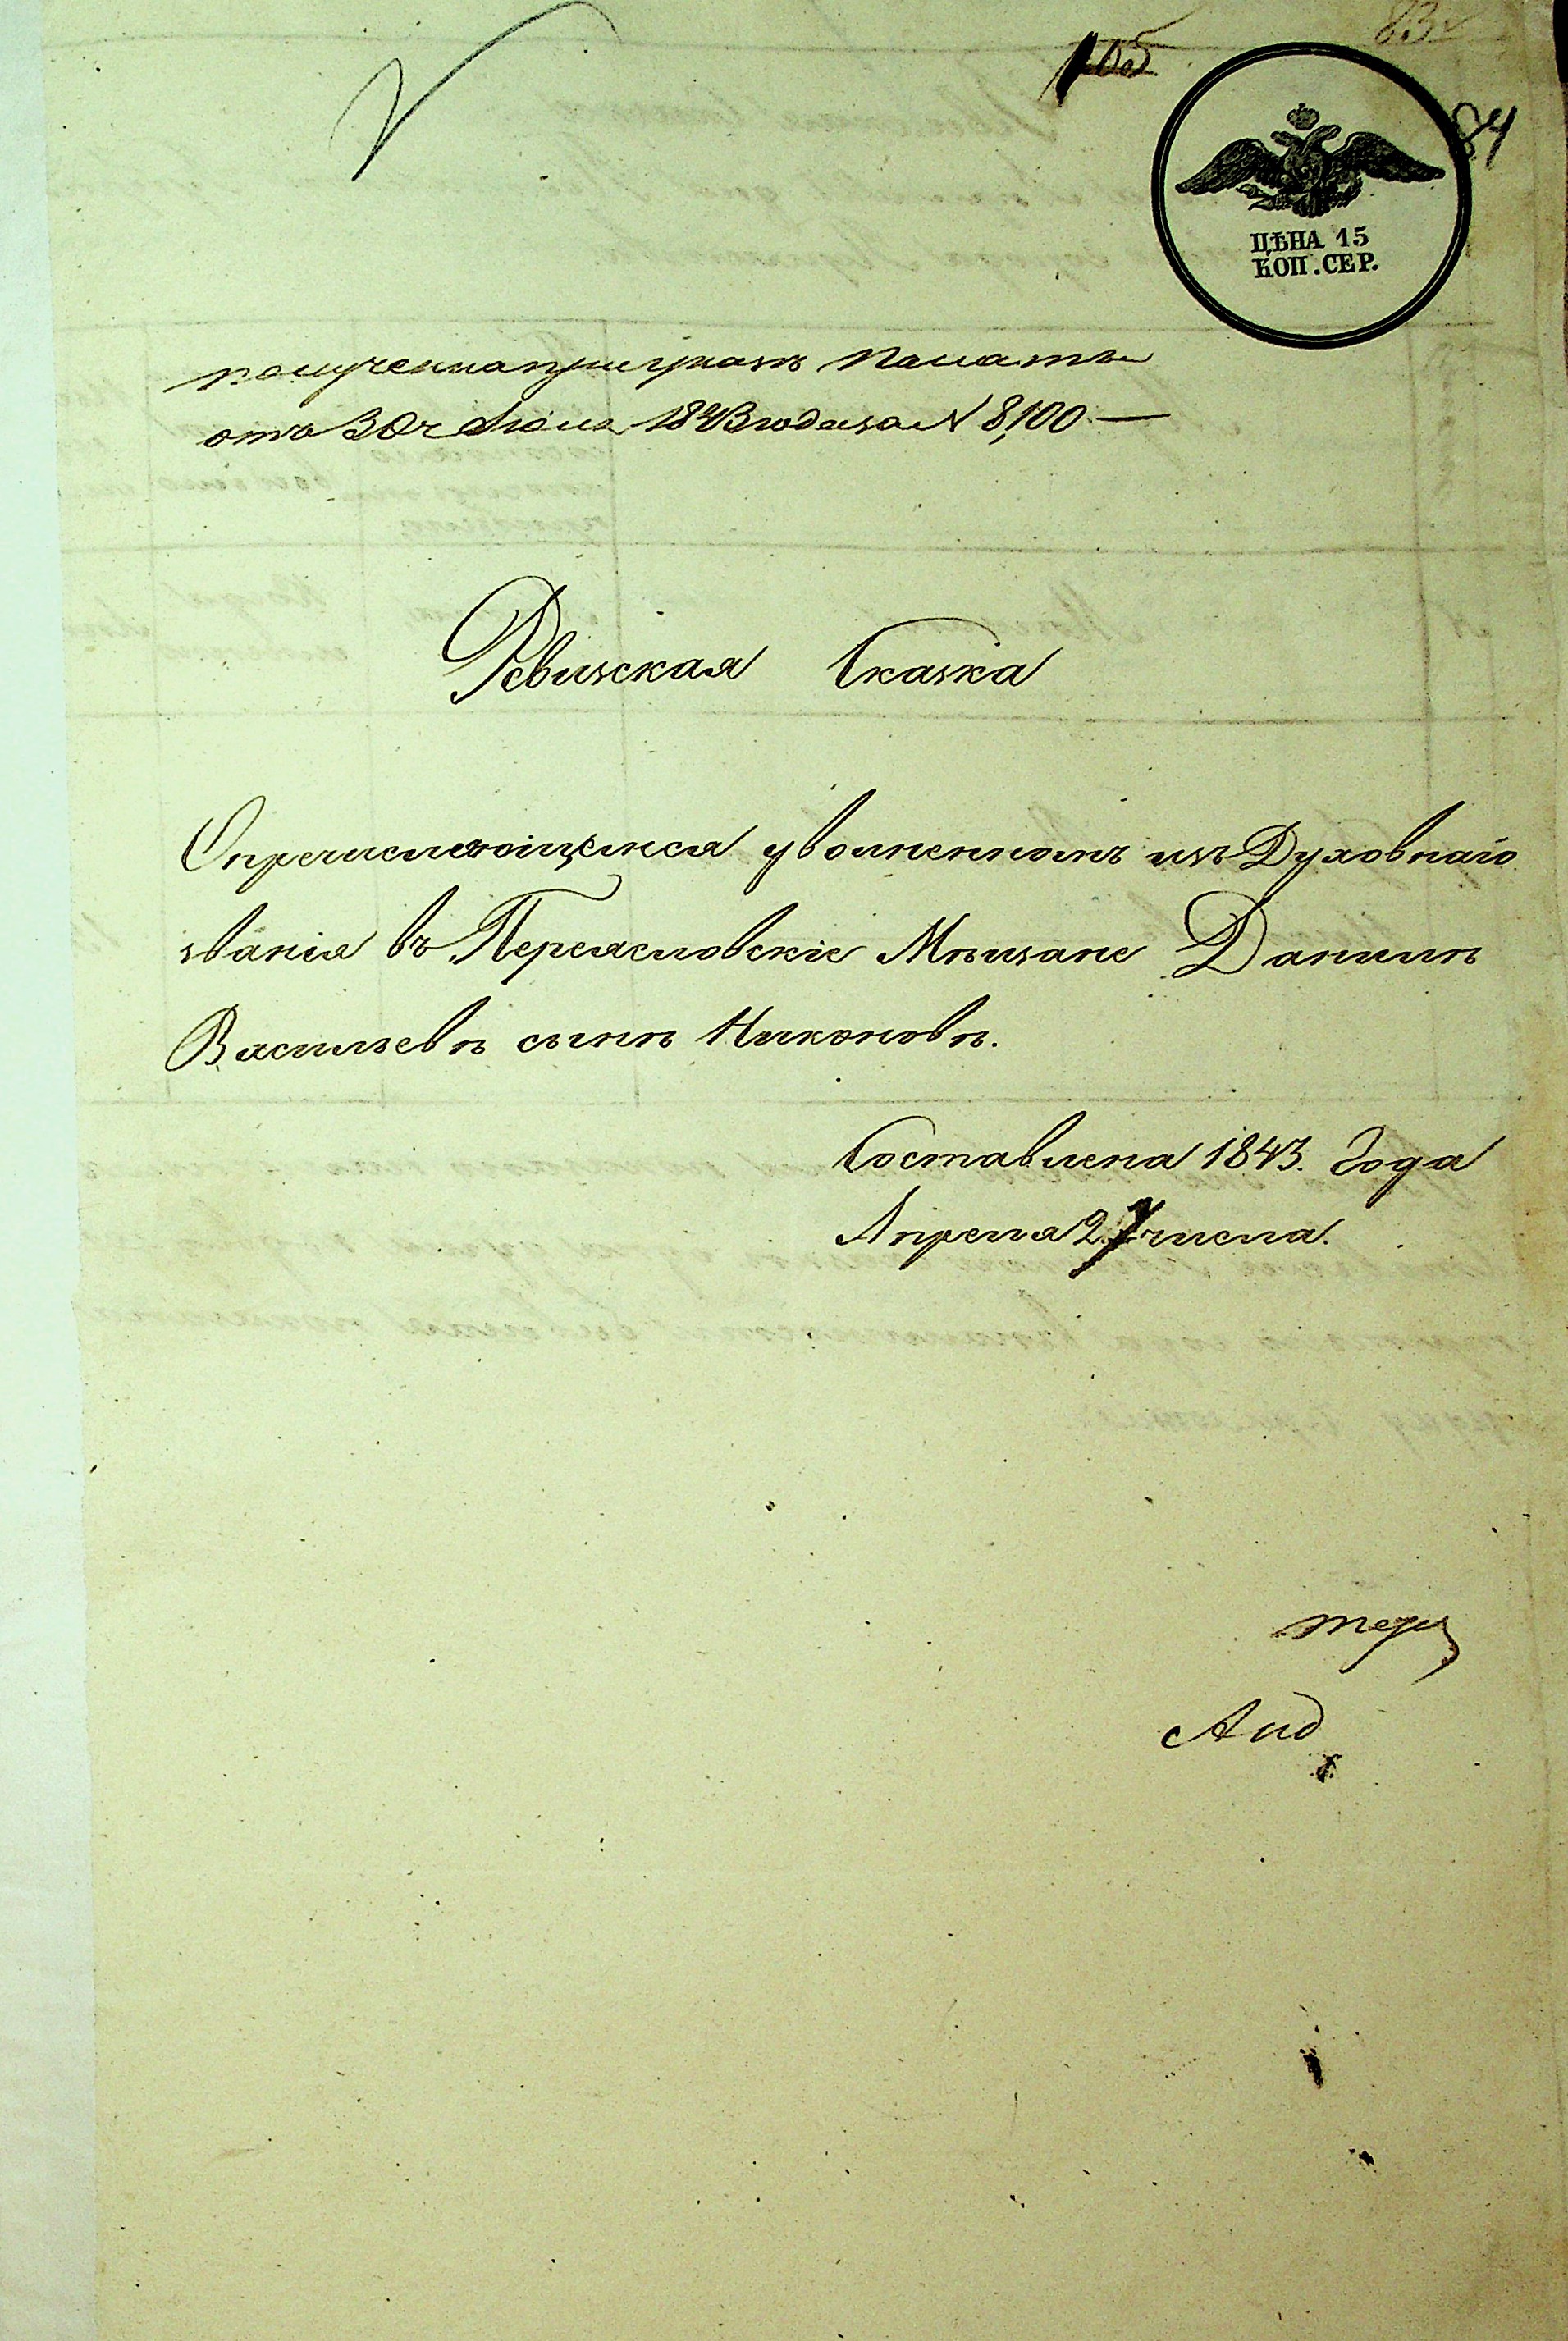 105
83
84
ЦѢНА 15
КОП. СЕР.
получена при указѣ Палаты
отъ 30ч 1843 года за № 8,100 —
Ревизская Сказка
О перечисляющемся уволненномъ изъ Духовнаго
званія въ Переясловскіе Мѣщане Данилѣ
Васильевѣ сынѣ Никоновѣ.
Составлена 1843. Года
Апреля 27 числа.